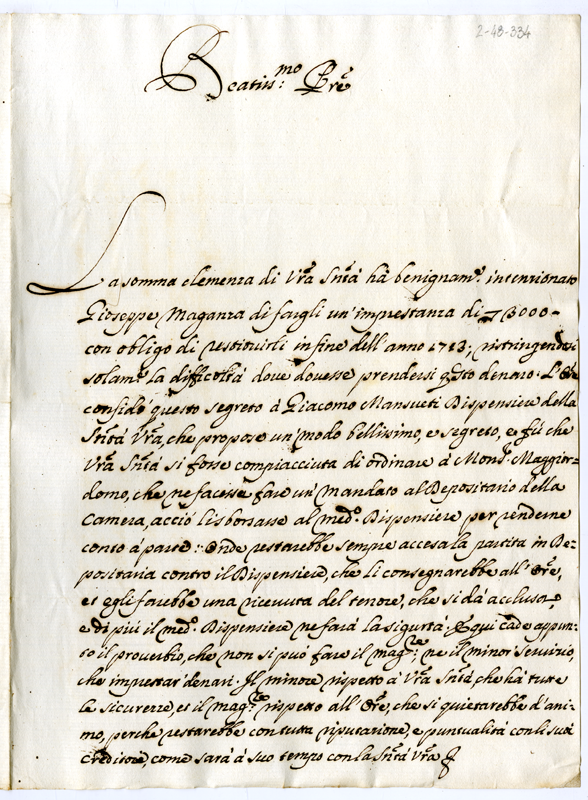 2-48-334
Beatiss:mo Pre
La somma clemenza di Vra Sntà hà benignam.e intenzionato
Gioseppe Maganza di fargli un' imprestanza di 3000-
con obligo di restituirli in fine dell' anno 1713; ristringendosi
solam.e la difficoltà dove dovesse prendersi gsto denaro. L'Ore
confidò questo segreto à Giacomo Mansueti Dispensiere della
Sntà Vra, che propose un' modo bellissimo, e segreto, e fù che
Vra Sntà si fosse compiacciuta di ordinare à Mons.r Maggior-
domo, che ne facesse fare un' mandato al Depositario della
Camera, acciò li sborsasse al med.o Dispensiere per renderne
conto à parte: Onde restarebbe sempre accesa la partita in De-
positaria contro il Dispensiere, che li consegnarebbe all' Ore,
et egli farebbe una ricevuta del tenore, che si dà acclusa,
e di più il med.o Dispensiere ne farà la sigurtà. E quì cade appun-
to il proverbio, che non si può fare il mag.re, ne il minor servizio,
che imprestar' denari. Il minore rispetto à Vra Sntà, che hà tutte
le sicurezze, et il mag.re rispetto all' Ore, che si quietarebbe d'ani-
mo, perche restarebbe con tutta riputazione, e puntualità con li suoi
Creditori, come sarà à suo tempo con la Sntà Vra